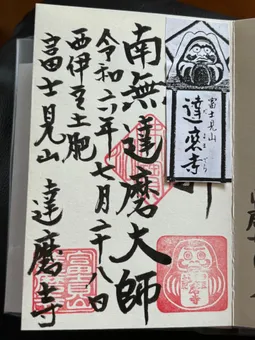 南無達磨大師
令和六年七月二十八日
西伊豆土肥
富士見山　達磨寺
富士見山
達磨寺
だるまでら